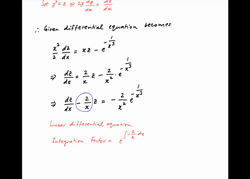 Put y² = z ⇒ 2y dy/dx = dz/dx
∴ Given differential equation becomes
x²/2 dz/dx = xz - e^(-1/x³)
⇒ dz/dx = 2/x z - 2/x² · e^(-1/x³)
⇒ dz/dx - 2/x z = - 2/x² e^(-1/x³)
Linear differential equation
Integration Factor = e^(∫-2/x dx)